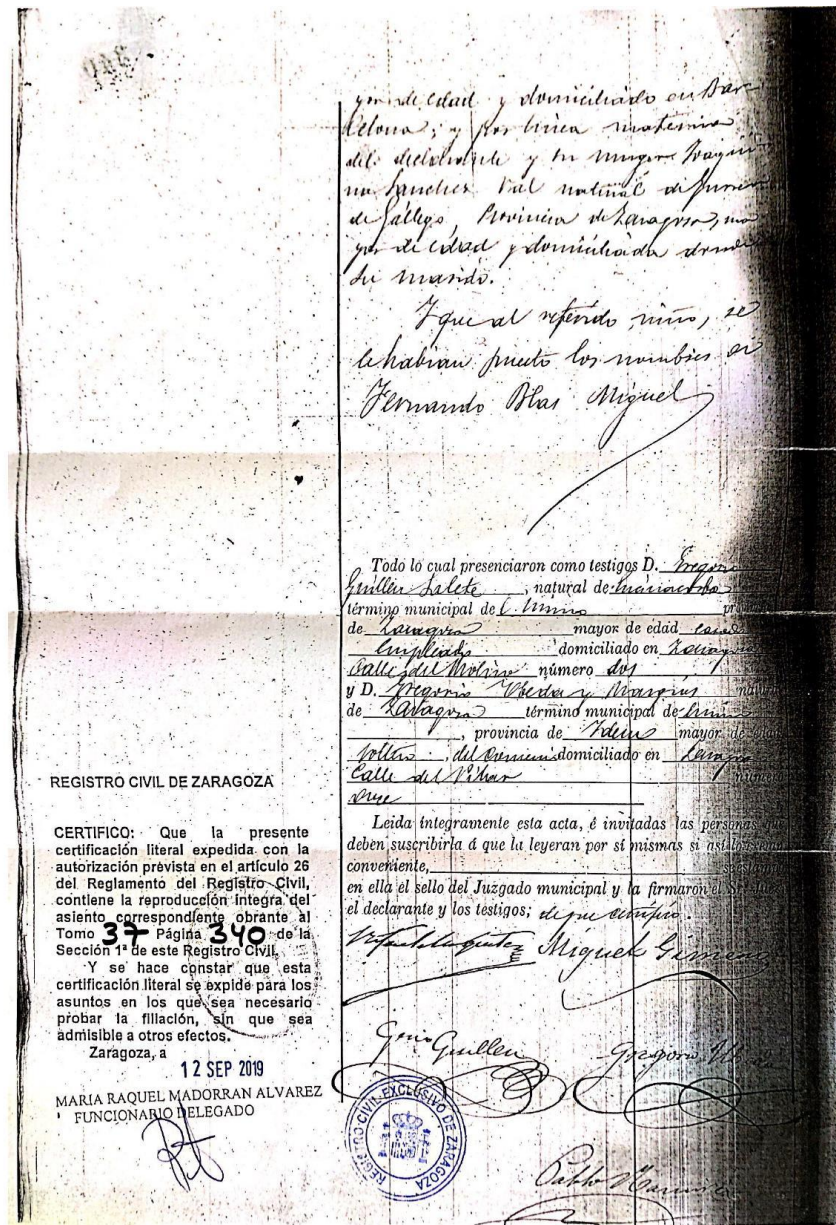 yor de edad y domiciliado en Bar
celona; y por linea materna
del declarante y su muger Joaqui
na Sanchez Val natural de
de Gállego, Provincia de Zaragoza, ma
yor de edad y domiciliada donde
su marido.
Y que al referido niño, se
le habian puesto los nombres de
Fernando Blas Miguel
Todo lo cual presenciaron como testigos D. Gregorio
Guillen , natural de
término municipal de
de Zaragoza mayor de edad
Empleado domiciliado en Zaragoza
Calle del Molino número dos
y D. Gregorio Ubeda y
de Zaragoza término municipal de
, provincia de Idem mayor de edad
Soltero, del Comercio domiciliado en Zaragoza
Calle del número
once
Leida íntegramente esta acta, é invitadas las personas que
deben suscribirla á que la leyeran por sí mismas si así lo creían
conveniente,
en ella el sello del Juzgado municipal y la firmaron el Sr. Juez
el declarante y los testigos; de que certifico.
Miguel Gimeno
Guillen Gregorio Ubeda
Pablo
REGISTRO CIVIL DE ZARAGOZA
CERTIFICO: Que la presente
certificación literal expedida con la
autorización prevista en el artículo 26
del Reglamento del Registro Civil,
contiene la reproducción integra del
asiento correspondiente obrante al
Tomo 37 Página 340 de la
Sección 1ª de este Registro Civil.
Y se hace constar que esta
certificación literal se expide para los
asuntos en los que sea necesario
probar la filiación, sin que sea
admisible a otros efectos.
Zaragoza, a
12 SEP 2019
MARIA RAQUEL MADORRAN ALVAREZ
FUNCIONARIO DELEGADO
REGISTRO CIVIL EXCLUSIVO DE ZARAGOZA